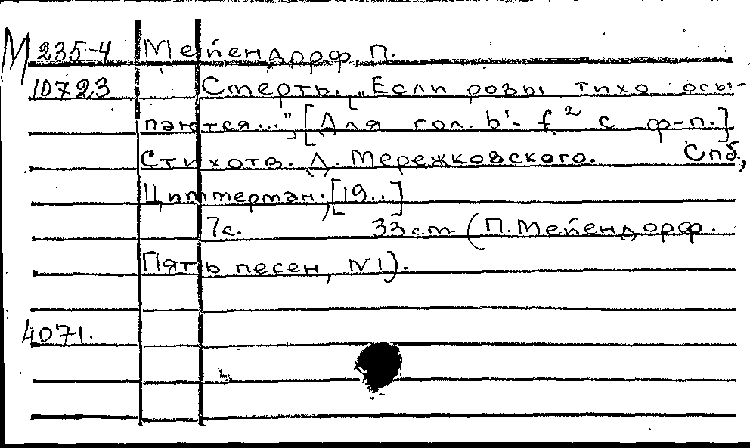 М 235-4 Мейендорф П.
10723 Смерть. „Если розы тихо осы-
паются...", [Для гол. b'- f² с ф-п.]
Стихотв. Д. Мережковского. Спб,
Циммерман, [19..]
7с. 33 см (П.Мейендорф.
Пять песен, N1).
4071.